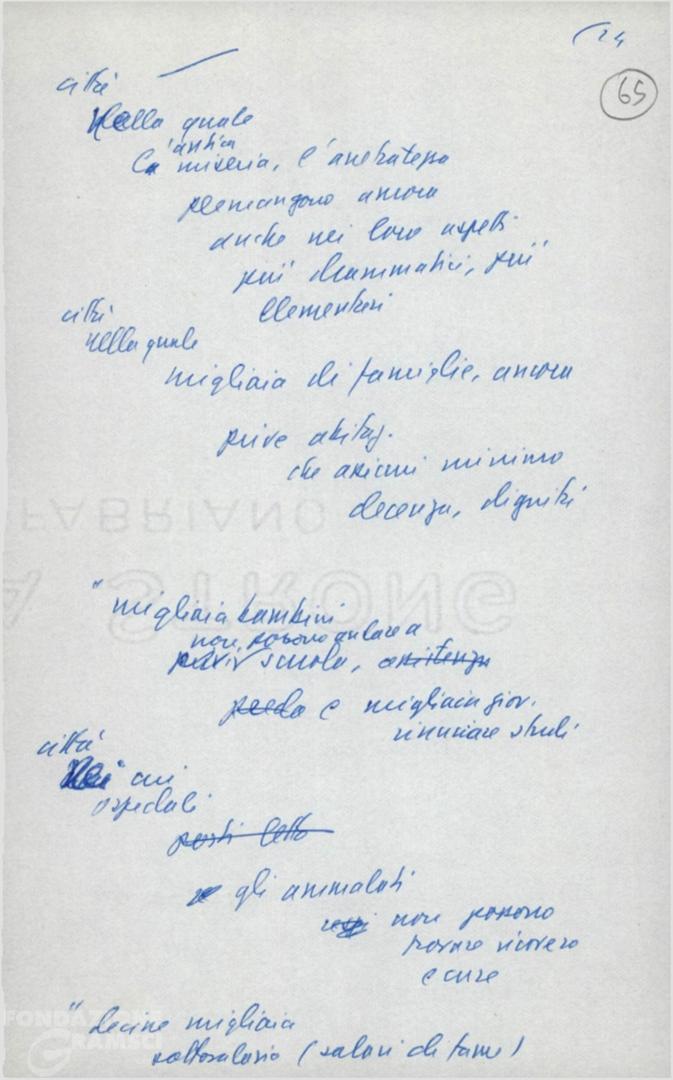 24
65
città
Nella quale
l'antica
la miseria, l'arretratezza
permangono ancora
anche nei loro aspetti
più drammatici, più
elementari
città
nella quale
migliaia di famiglie, ancora
prive abitaz.
che assicuri minimo
decenza, dignità
" migliaia bambini
non possono andare a
scuola, assistenza
e migliaia giov.
rinunciare studi
città
cui
ospedali
posti letto
gli ammalati
non possono
trovare ricovero
e cure
" decine migliaia
sottosalario (salari di fame)
FABRIANO
A STRONG
FONDAZIONE
GRAMSCI